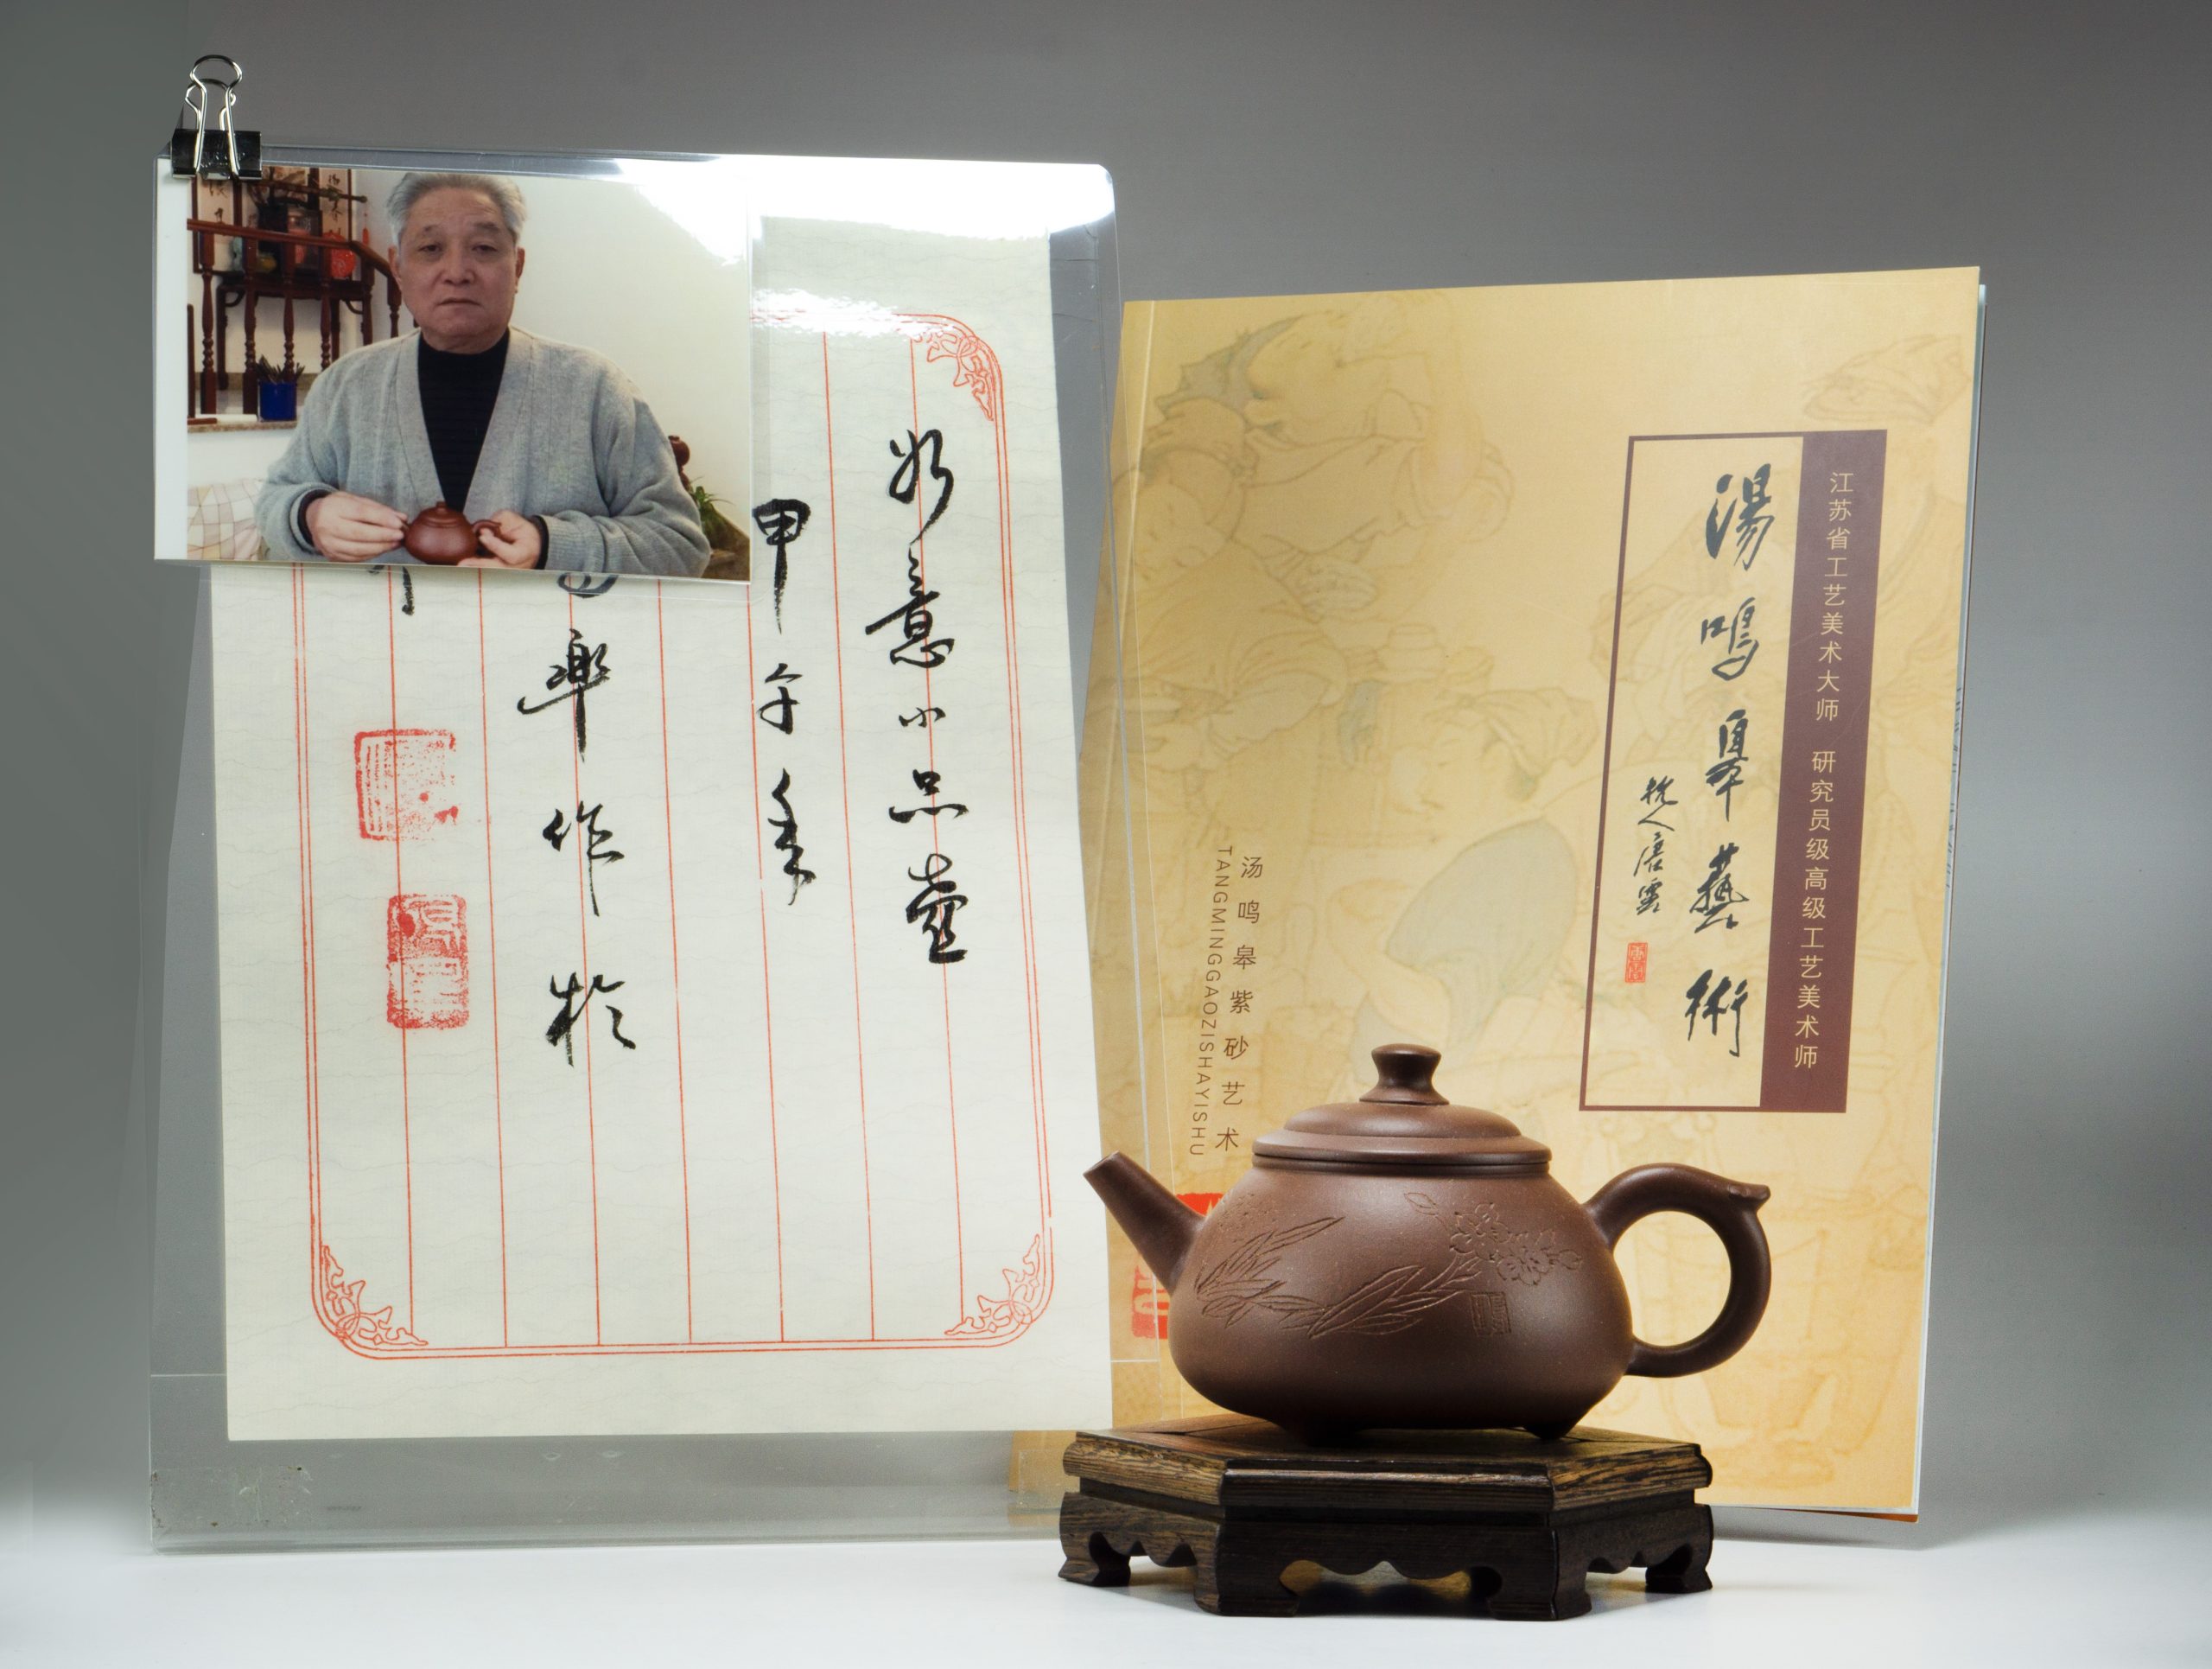 如意小品壶
甲午年
皋作於
江苏省工艺美术大师 研究员级高级工艺美术师
湯鳴皋藝術
杭人唐雲
汤鸣皋紫砂艺术
TANGMINGGAOZISHAYISHU